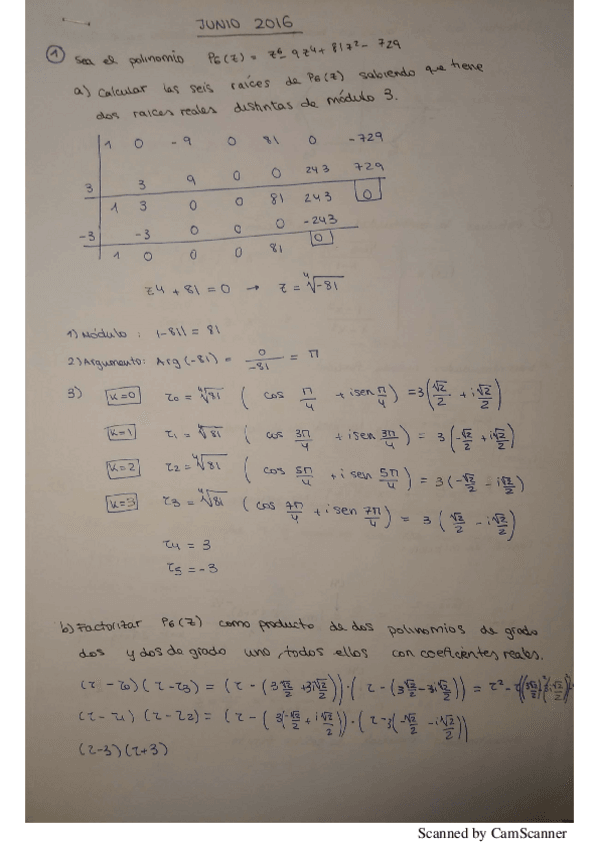 JUNIO 2016
① Sea el polinomio P6(z) = z⁶ - 9z⁴ + 81z² - 729
a) Calcular las seis raíces de P6(z) sabiendo que tiene
dos raíces reales distintas de módulo 3.
1 0 -9 0 81 0 -729
3 3 9 0 0 243 729
1 3 0 0 81 243 0
-3 -3 0 0 0 -243
1 0 0 0 81 0
z⁴ + 81 = 0 → z = ⁴√-81
1) Módulo : |-81| = 81
2) Argumento: Arg(-81) = 0/-81 = π
3) K=0 z0 = ⁴√81 ( cos π/4 + i sen π/4 ) = 3(√2/2 + i√2/2)
K=1 z1 = ⁴√81 ( cos 3π/4 + i sen 3π/4 ) = 3(-√2/2 + i√2/2)
K=2 z2 = ⁴√81 ( cos 5π/4 + i sen 5π/4 ) = 3(-√2/2 - i√2/2)
K=3 z3 = ⁴√81 ( cos 7π/4 + i sen 7π/4 ) = 3(√2/2 - i√2/2)
z4 = 3
z5 = -3
b) Factorizar P6(z) como producto de dos polinomios de grado
dos y dos de grado uno, todos ellos con coeficientes reales.
(z - z0)(z - z3) = (z - (3√2/2 + 3i√2/2))·(z - (3√2/2 - 3i√2/2)) = z² - z
(z - z1)(z - z2) = (z - (3(-√2/2 + i√2/2))·(z - 3(-√2/2 - i√2/2))
(z-3)(z+3)
Scanned by CamScanner